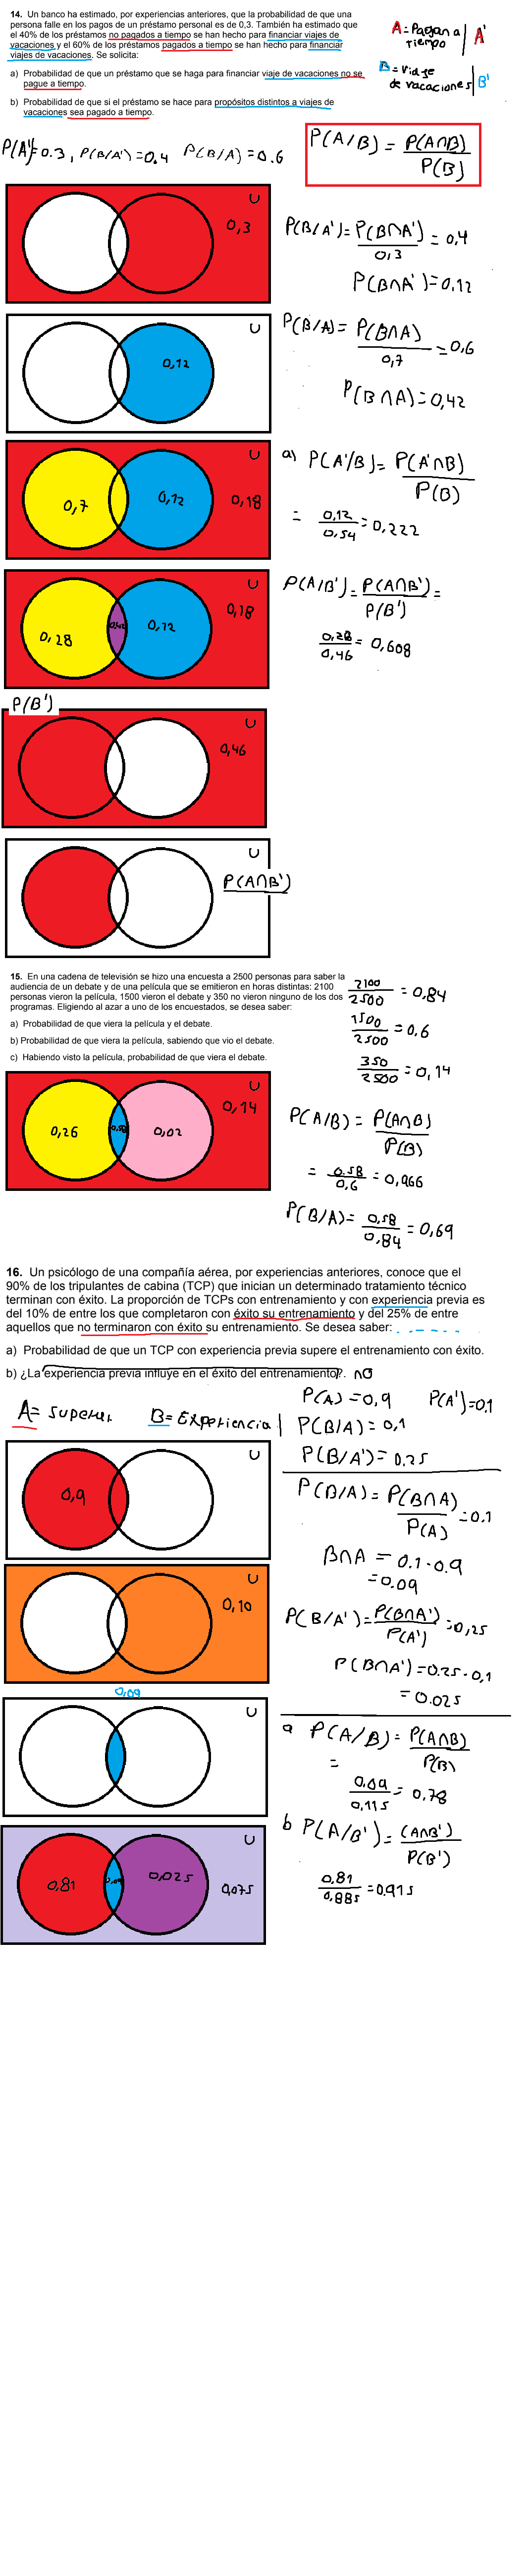 14. Un banco ha estimado, por experiencias anteriores, que la probabilidad de que una
persona falle en los pagos de un préstamo personal es de 0,3. También ha estimado que
el 40% de los préstamos no pagados a tiempo se han hecho para financiar viajes de
vacaciones y el 60% de los préstamos pagados a tiempo se han hecho para financiar
viajes de vacaciones. Se solicita:
a) Probabilidad de que un préstamo que se haga para financiar viaje de vacaciones no se
pague a tiempo.
b) Probabilidad de que si el préstamo se hace para propósitos distintos a viajes de
vacaciones sea pagado a tiempo.
A = Pagan a tiempo | A'
B = Viaje de vacaciones | B'
P(A')=0.3, P(B/A')=0.4 P(B/A)=0.6
P(A/B) = P(A∩B) / P(B)
U
0,3
P(B/A')= P(B∩A') / 0,3 = 0,4
P(B∩A')=0,12
U
0,12
P(B/A)= P(B∩A) / 0,7 = 0,6
P(B∩A)=0,42
U
0,7 0,12 0,18
a) P(A'/B)= P(A'∩B) / P(B)
= 0,12 / 0,54 = 0,222
U
0,28 0,42 0,12 0,18
P(A/B')= P(A∩B') / P(B') =
0,28 / 0,46 = 0,608
P(B')
U
0,46
U
P(A∩B')
15. En una cadena de televisión se hizo una encuesta a 2500 personas para saber la
audiencia de un debate y de una película que se emitieron en horas distintas: 2100
personas vieron la película, 1500 vieron el debate y 350 no vieron ninguno de los dos
programas. Eligiendo al azar a uno de los encuestados, se desea saber:
a) Probabilidad de que viera la película y el debate.
b) Probabilidad de que viera la película, sabiendo que vio el debate.
c) Habiendo visto la película, probabilidad de que viera el debate.
2100 / 2500 = 0,84
1500 / 2500 = 0,6
350 / 2500 = 0,14
U
0,26 0,58 0,02 0,14
P(A/B) = P(A∩B) / P(B)
= 0.58 / 0,6 = 0,966
P(B/A)= 0,58 / 0,84 = 0,69
16. Un psicólogo de una compañía aérea, por experiencias anteriores, conoce que el
90% de los tripulantes de cabina (TCP) que inician un determinado tratamiento técnico
terminan con éxito. La proporción de TCPs con entrenamiento y con experiencia previa es
del 10% de entre los que completaron con éxito su entrenamiento y del 25% de entre
aquellos que no terminaron con éxito su entrenamiento. Se desea saber:
a) Probabilidad de que un TCP con experiencia previa supere el entrenamiento con éxito.
b) ¿La experiencia previa influye en el éxito del entrenamiento?. no
A= superar B= Experiencia
P(A)=0,9 P(A')=0.1
P(B/A)=0,1
P(B/A')=0.25
U
0,9
P(B/A)= P(B∩A) / P(A) =0.1
B∩A = 0.1·0.9
=0.09
U
0,10
P(B/A')= P(B∩A') / P(A') =0,25
P(B∩A')=0.25·0,1
=0.025
0,09
U
a P(A/B)= P(A∩B) / P(B)
= 0,09 / 0,115 = 0,78
U
0,81 0,09 0,025 0,075
b P(A/B')= (A∩B') / P(B')
0,81 / 0,885 =0.915